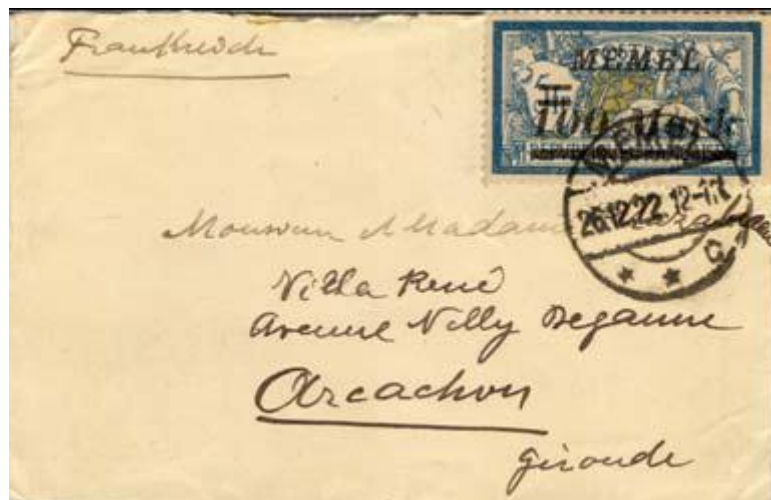 Frankreich
MEMEL
100 Mark
MEMEL
26.12.22.12-1
Monsieur Madame
Villa René
Avenue Nelly Deganne
Arcachon
Gironde